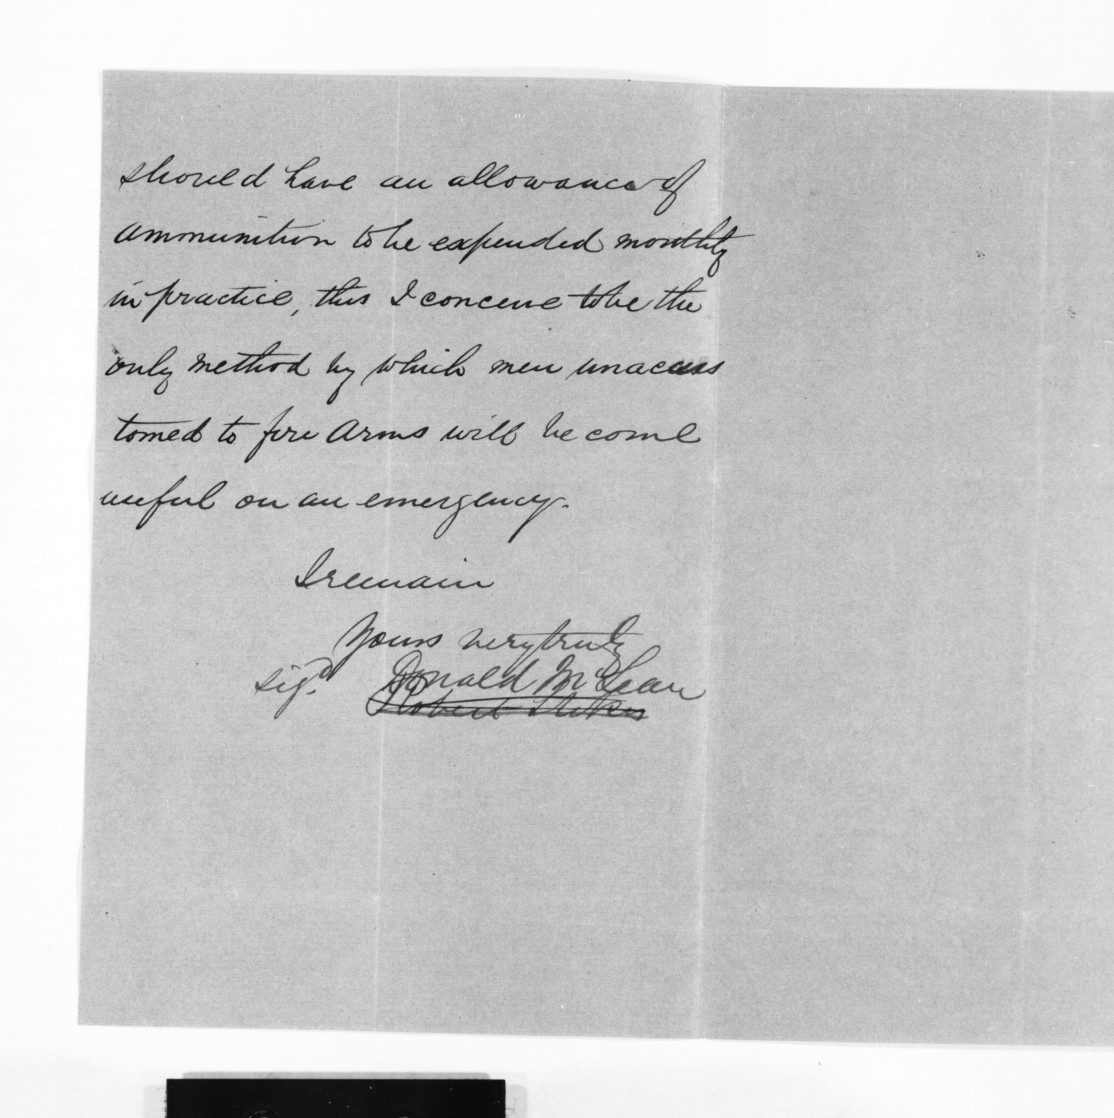 should have an allowance of
ammunition to be expended monthly
in practice, this I conceive to be the
only method by which men unaccus
tomed to fire Arms will become
useful on an emergency.
I remain
Yours very truly
sigd. Donald McLean
Robert Stokes